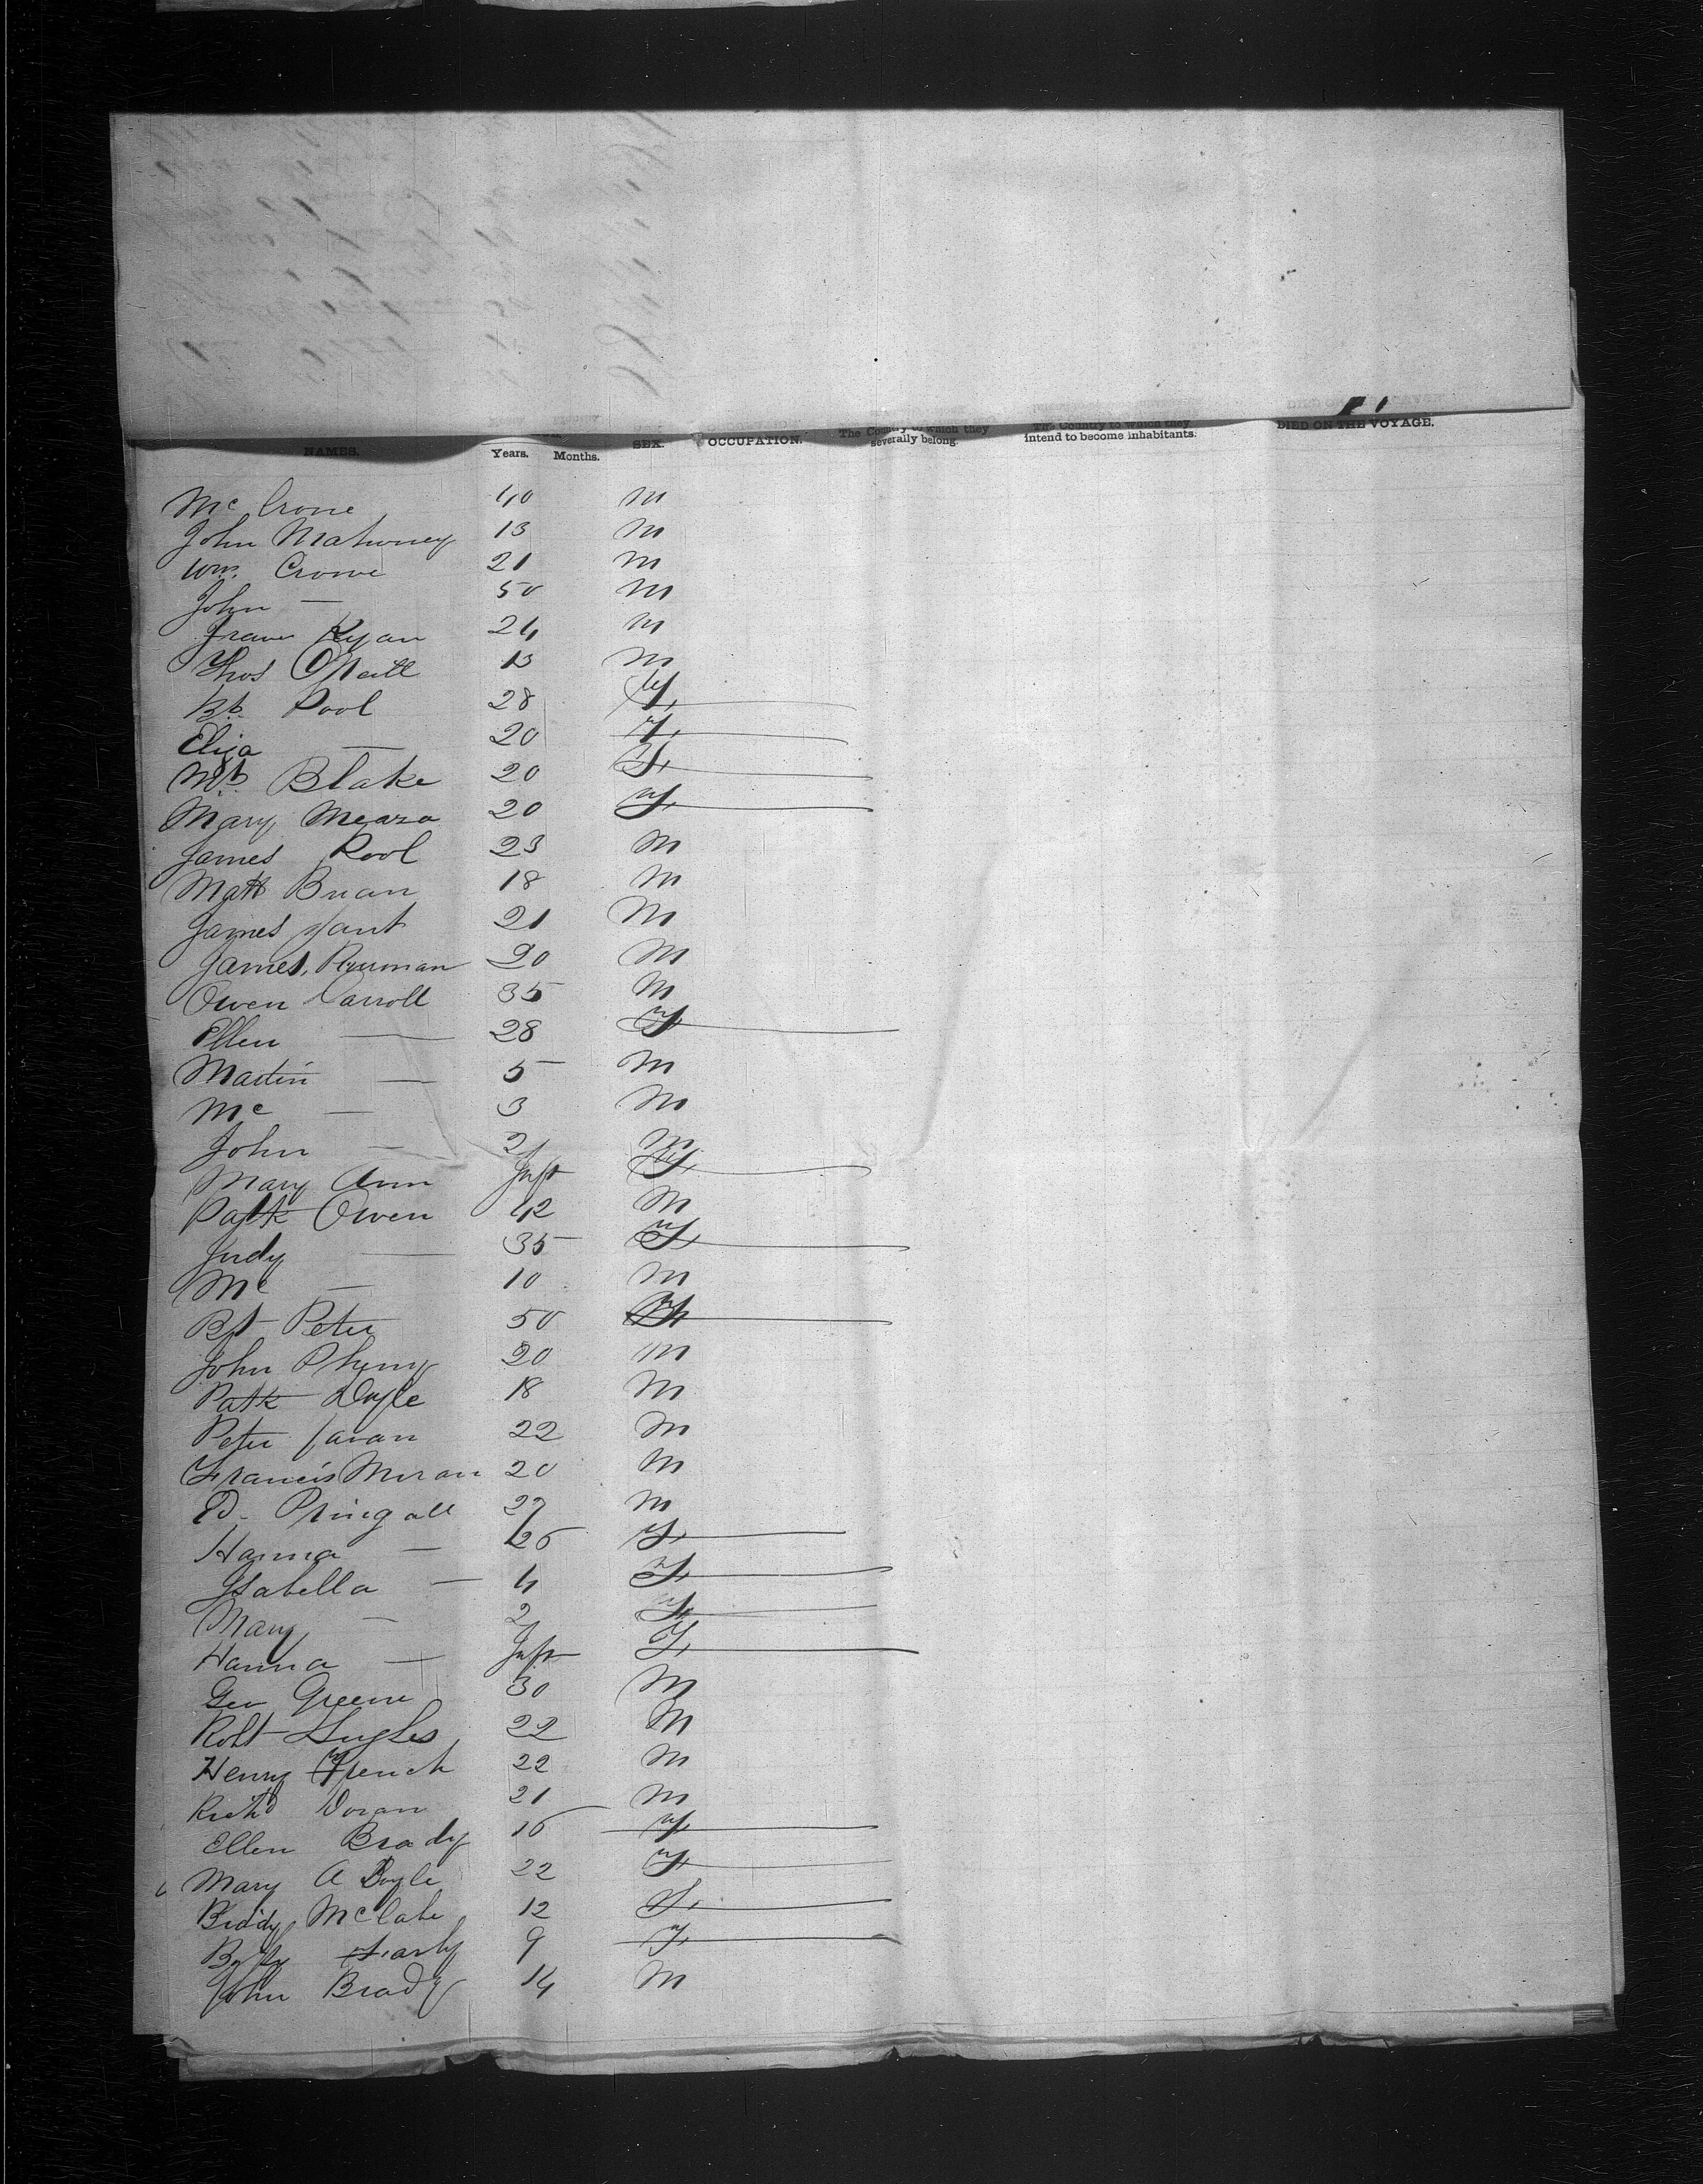 NAMES. Years. Months. SEX. OCCUPATION. The Country to which they severally belong. The Country to which they intend to become inhabitants. DIED ON THE VOYAGE.
Mc Crone 40 M
John Mahoney 13 M
Wm. Crowe 21 M
John — 50 M
Ryan 24 M
Thos O'Neill 13 M
Bt. Pool 28 F
Eliza — 20 F
Blake 20 F
Mary Meara 20 F
James Pool 23 M
Matt Brian 18 M
James 21 M
James 20 M
Owen Carroll 35 M
Ellen — 28 F
Martin — 5 M
Mc — 3 M
John — 2 M
Mary Ann Inft F
Patk Owen 42 M
Judy — 35 F
Mc — 10 M
Bt Peter 50 F
John 20 M
Patk Doyle 18 M
Peter 22 M
Francis Moran 20 M
Ed. Pringall 27 M
Hanna — 26 F
Isabella — 4 F
Mary — 2 F
Hanna — Inft F
Geo Greene 30 M
Robt Hughes 22 M
Henry French 22 M
Richd Doran 21 M
Ellen Brady 16 F
Mary A Doyle 22 F
Biddy McCabe 12 F
9 F
John Brady 14 M